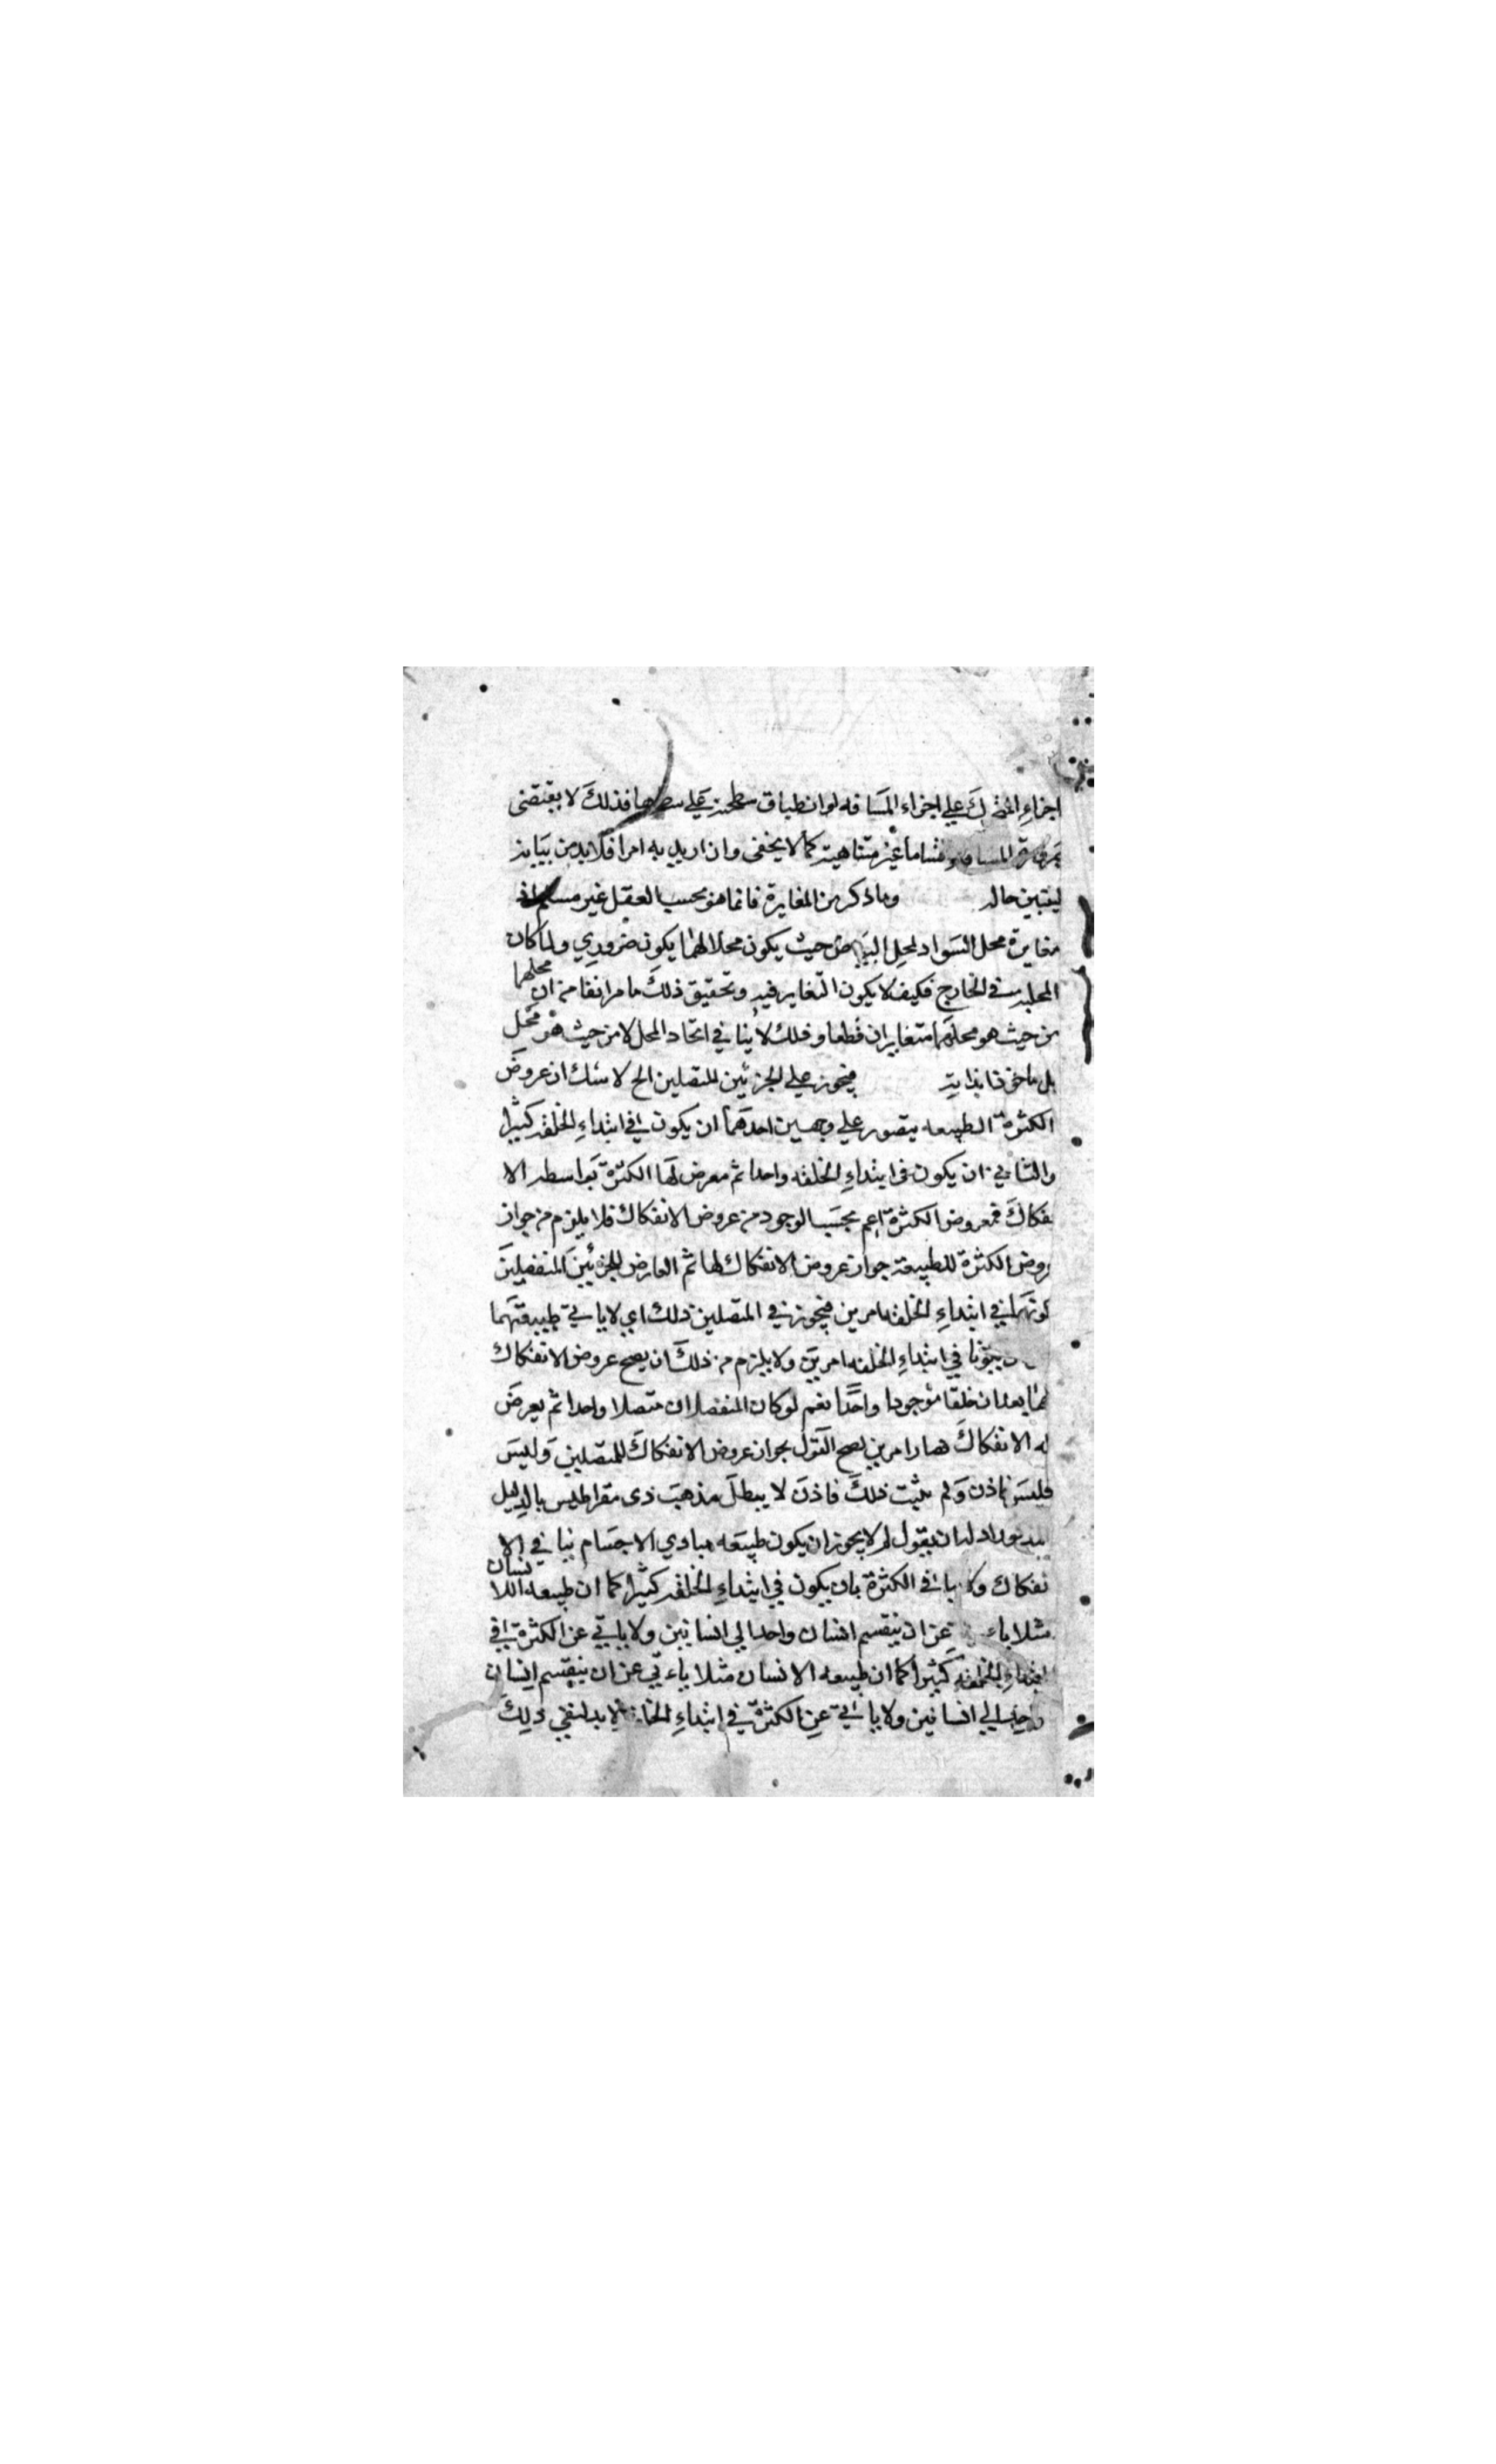 اجزاء المتحرك علي اجزاء المسافه او انطباق سطحه علي سطحها فذلك لا يقتضى
غير متناهية كما لا يخفى وان اريد به امرا فلا بد من بيانه
ليتبين حاله وما ذكر من المغايرة فانما هو بحسب العقل غير مسلم اذ
مغايرة محل السواد لمحل البياض حيث يكون محلا لهما يكون ضروري ولما كان
المحلين في الخارج فكيف لا يكون التغاير فيه وتحقيق ذلك ما مر انفا من ان محلهما
من حيث هو محلهما متغايران قطعا وذلك لا ينافي اتحاد المحل لا من حيث هو محل
بل ماخوذا بذاته فيجوز علي الجزئين المتصلين الح لا شك ان عروض
الكثرة الطبيعه يتصور علي وجهين احدهما ان يكون في ابتداء الخلقه كثيرا
والثاني ان يكون فى ابتداء الخلقه واحدا ثم يعرض لها الكثرة بواسطه الا
نفكاك فعروض الكثرة اعم بحسب الوجود من عروض الانفكاك فلا يلزم من جواز
عروض الكثرة للطبيعة جواز عروض الانفكاك لها ثم العارض للجزئين المنفصلين
كونهما في ابتداء الخلقه امرين فيجوز في المتصلين ذلك اي لا يابي طبيعتهما
في ابتداء الخلقه امرين ولا يلزم من ذلك ان يصح عروض الانفكاك
لهما بعد ان خلقا موجودا واحدا نعم لو كان المنفصلان متصلا واحدا ثم يعرض
له الانفكاك فصارا امرين لصح القول بجواز عروض الانفكاك للمتصلين وليس
فليس فاذن ولم يثبت ذلك فاذن لا يبطل مذهب ذى مقراطيس بالدليل
ان يقول لم لا يجوز ان يكون طبيعه مبادي الاجسام ينافي الا
نفكاك ولا ينافي الكثرة بان يكون في ابتداء الخلقه كثيرا كما ان طبيعه الانسان
مثلا عن ان ينقسم انسان واحد الي انسانين ولا يابي عن الكثرة في
ابتداء الخلقه كثيرا كما ان طبيعه الانسان مثلا ياءبي عن ان ينقسم انسان
واحد الي انسانين ولا يابي عن الكثرة في ابتداء الخلقه لا بد لنفي ذلك